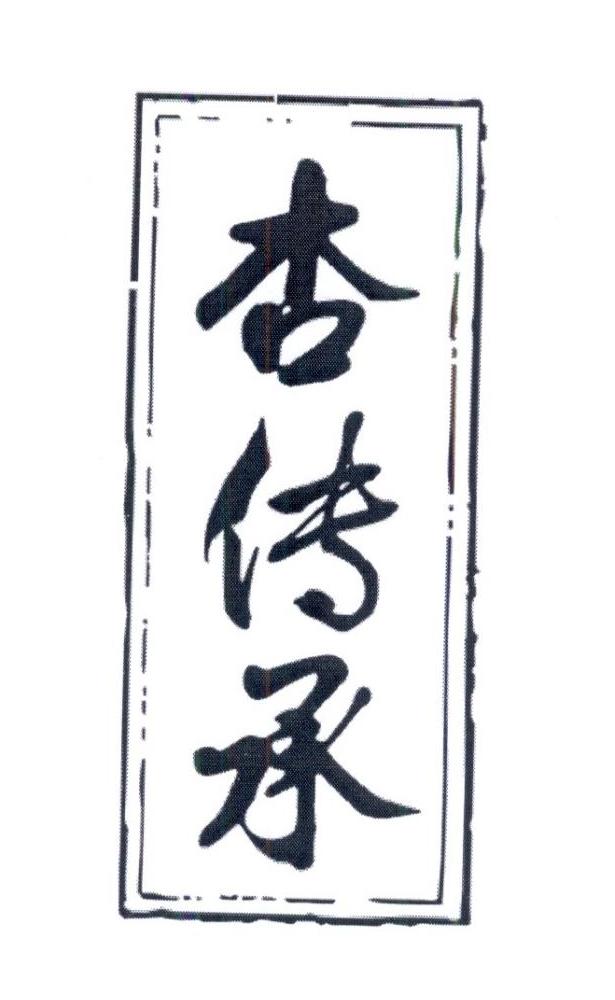 杏传承